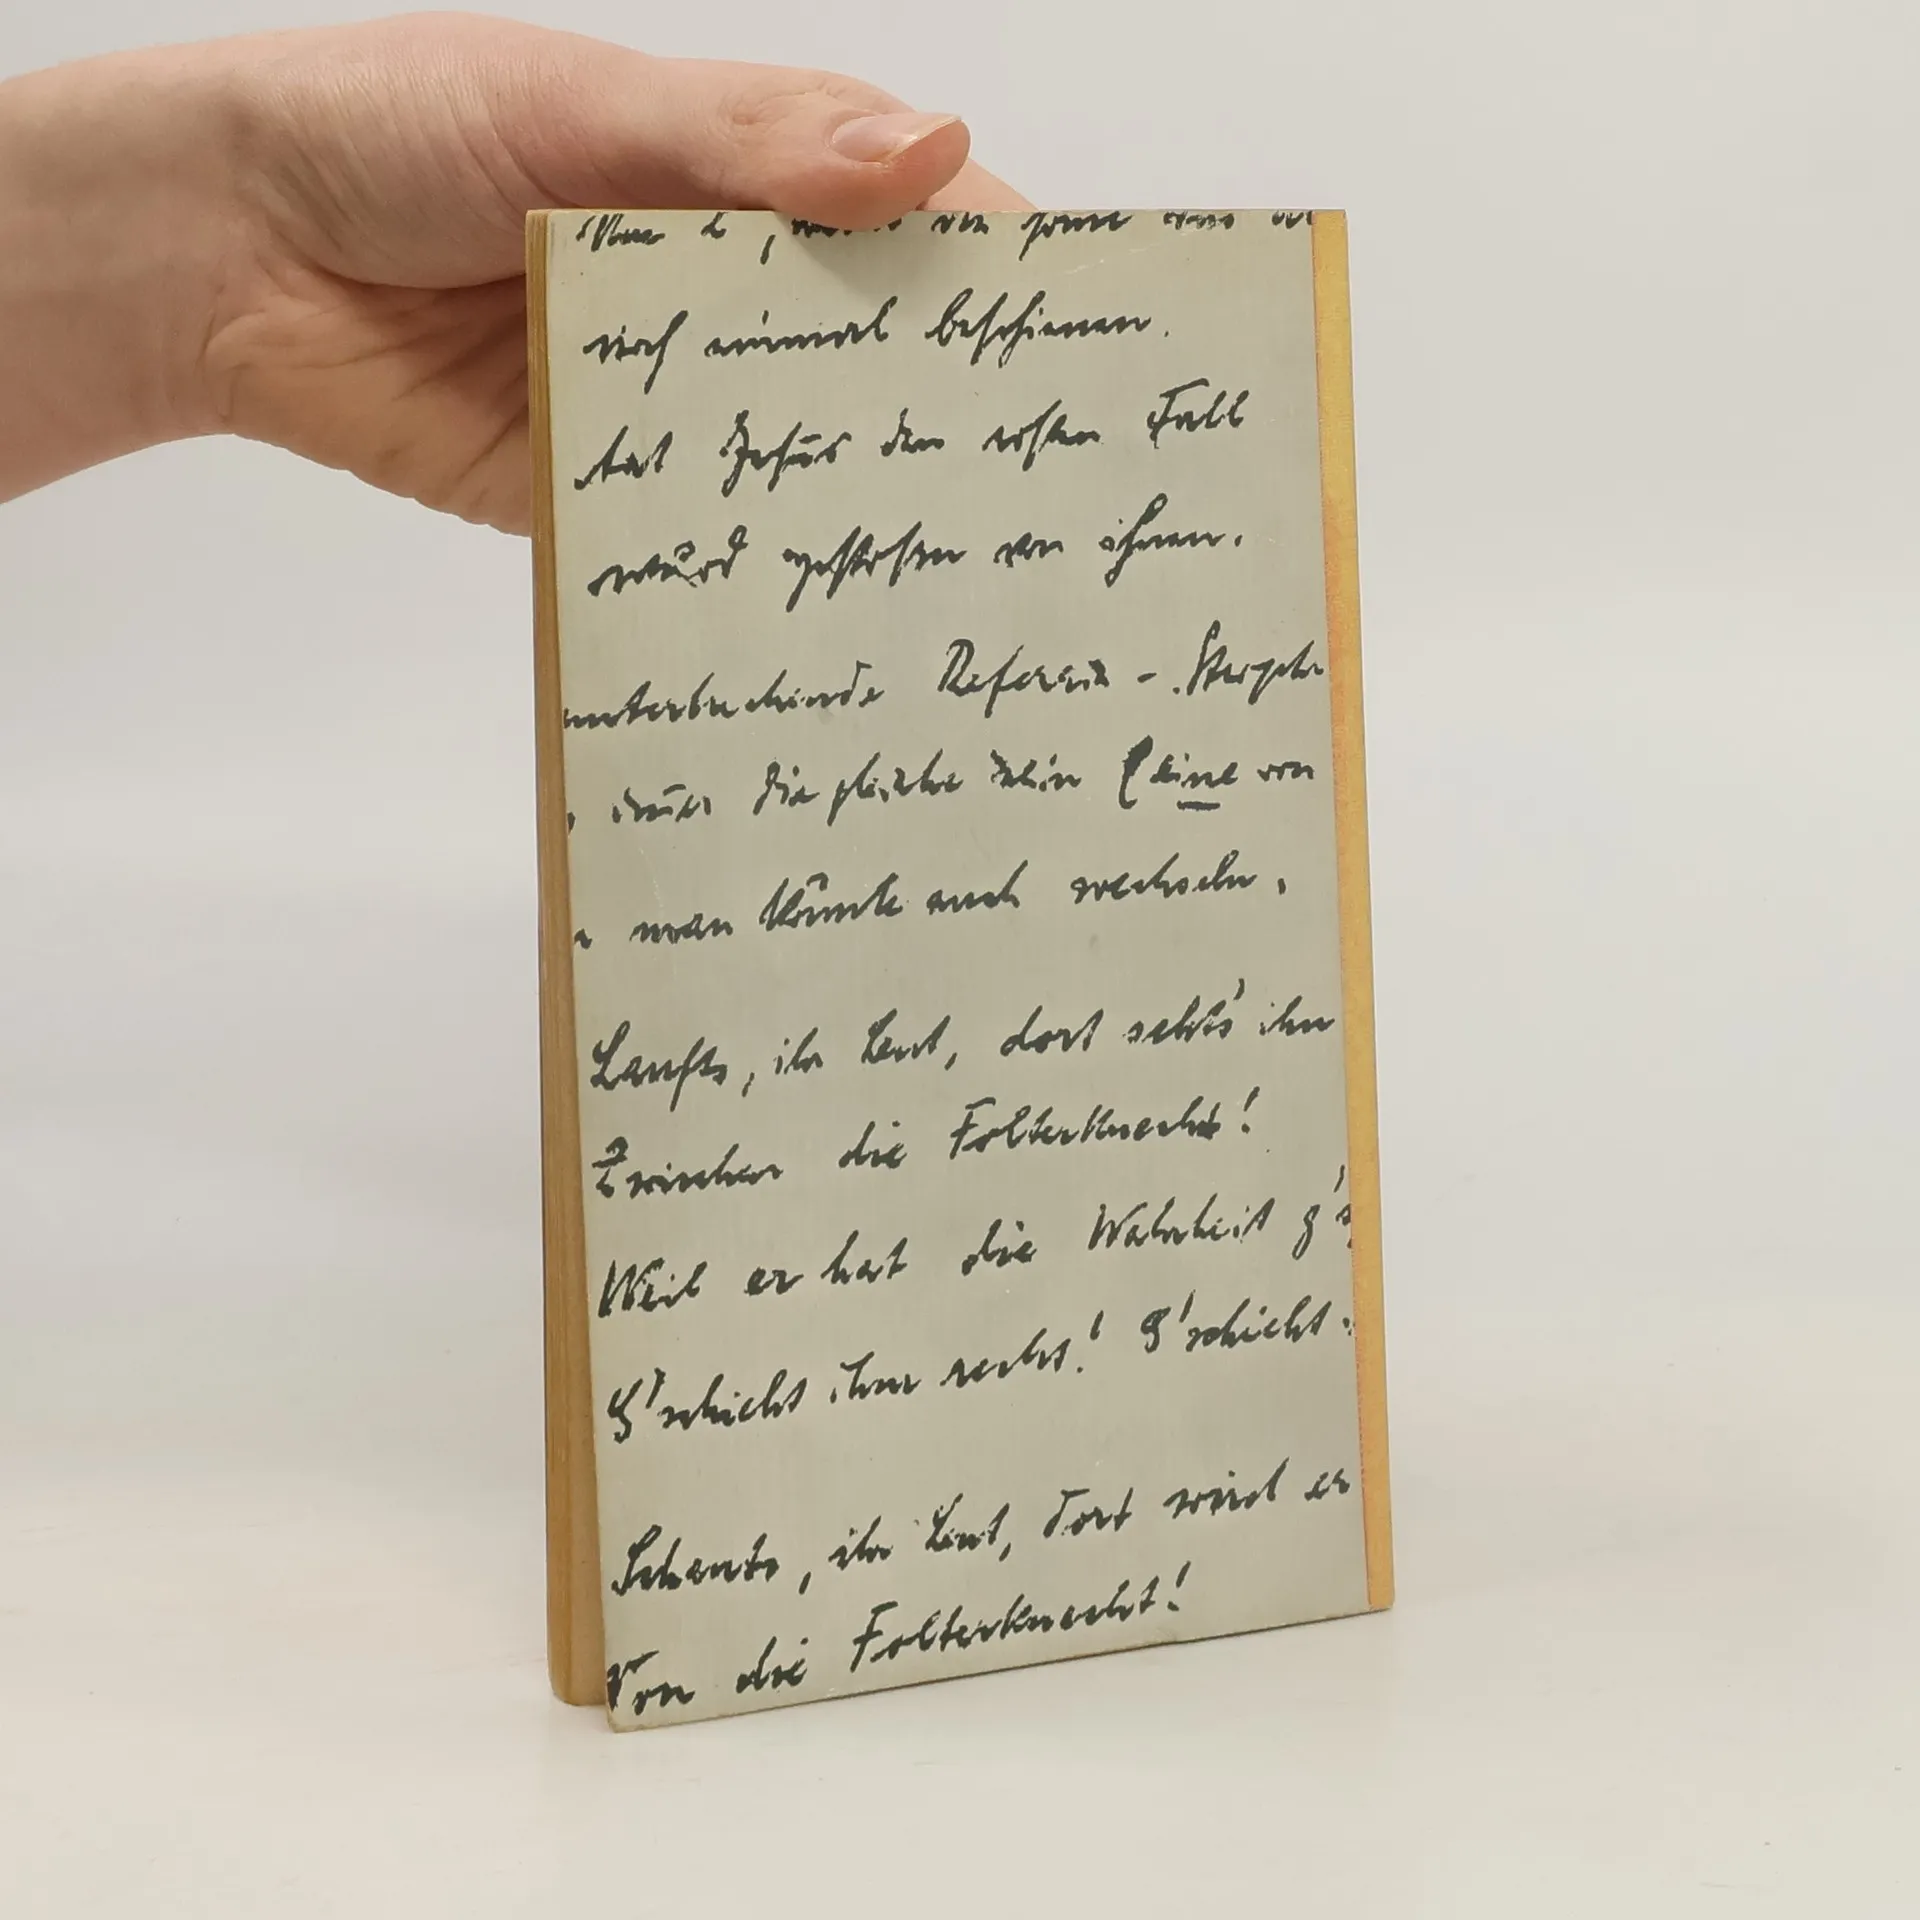 noch einmal beschienen.
tat Jesus den ersten Fall
wurd gestoßen von ihnen.
unterbrechende Referain - Strophe
die gleiche sein (eine von
man könnte auch wechseln,
Laufts, ihr Leut, dort sehts' ihn
Zwischen die Folterknecht!
Weil er hat die Wahrheit g's
G'schieht ihm recht! G'schieht
Schauts, ihr Leut, dort wird er
Von die Folterknecht!